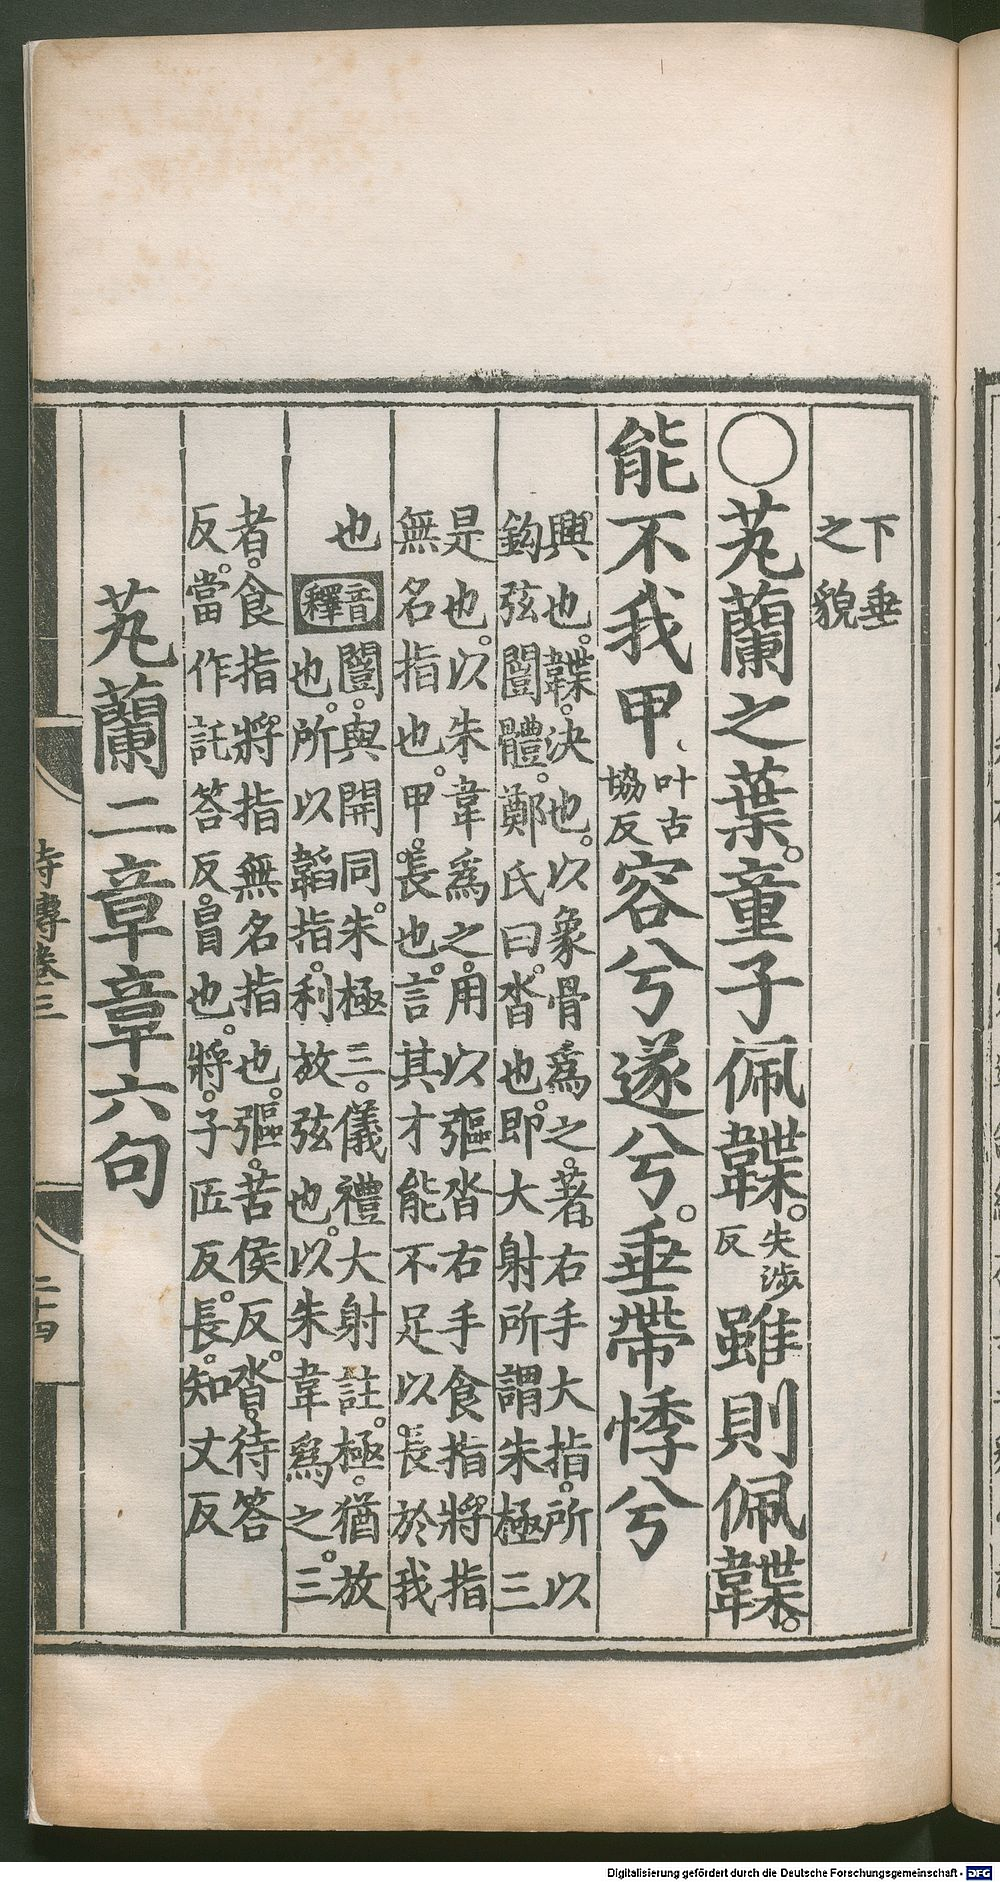 下垂
之貌
○芄蘭之葉。童子佩韘。失涉反雖則佩韘。
能不我甲、叶古協反容兮遂兮。垂帶悸兮
興也。韘。決也。以象骨爲之。著。右手大指。所以
鉤弦闓體。鄭氏曰。沓也。即大射所謂朱極三
是也。以朱韋爲之。用以彄沓右手食指將指
無名指也。甲。長也。言其才能不足以長於我
也
音釋
闓。與開同。朱極三。儀禮大射註。極。猶放
也。所以韜指。利放弦也。以朱韋爲之。三
者。食指將指無名指也。彄。苦侯反。沓。待答
反。當作託答反。冒也。將。子匠反。長。知丈反
芄蘭二章章六句
詩傳卷三
二十四
Digitalisierung gefördert durch die Deutsche Forschungsgemeinschaft - DFG